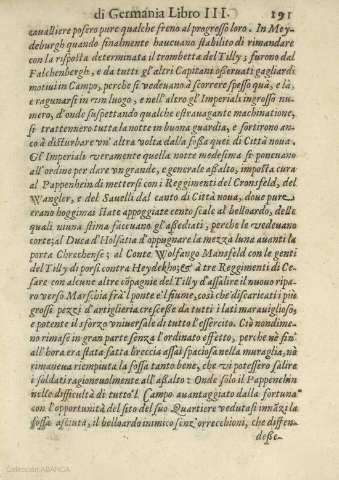 di Germania Libro III. 191
cavalliere posero pure qualche freno al progresso loro. In Mey-
deburgh quando finalmente haueuano stabilito di rimandare
con la risposta determinata il trombetta del Tilly; furono dal
Falchenbergh, e da tutti gl'altri Capitani osseruati gagliardi
motiui in Campo, perche si vedeuano à scorrere spesso quà, e là,
e ragunarsi in vn luogo, e nell'altro gl'Imperiali ingrosso nu-
mero, d'onde suspettando qualche estrauagante machinatione,
si trattennero tutta la notte in buona guardia, e sortirono an-
cò à disturbare vn'altra volta dalla fossa quei di Città noua.
Gl'Imperiali veramente quella notte medesima si poneuano
all'ordine per dare vn grande, e generale assalto, imposta cura
al Pappenheim di mettersi con i Reggimenti del Cronsfeld, del
Wangler, e del Sauelli dal canto di Città noua, doue pure
erano hoggimai state appoggiate cento scale al belloardo, delle
quali niuna stima faceuano gl'assediati, perche le vedeuano
corte; al Duca d'Holsatia d'oppugnare la mezzà luna auanti la
porta Chrethense; al Conte Wolfango Mansfeld con le genti
del Tilly di porsi contra Heydekho; & à tre Reggimenti di Ce-
sare con alcune altre cõpagnie del Tilly d'assalire il nuovo ripa-
ro verso Marschia frà'l ponte e'l fiume, così che discaricati i più
grosse pezzi d'artiglieria cresceße da tutti i lati marauiglioso,
e potente il sforzo vniuersale di tutto l'essercito. Ciò nondime-
no rimase in gran parte senza l'ordinato effetto, perche nè fin'
all'hora era stata fatta breccia assai spaciosa nella muraglia, nè
rimaneua riempiuta la fossa tanto bene, che vi potessero salire
i soldati ragioneuolmente all'assalto: Onde solo il Pappenehim
nelle difficultà di tutto'l Campo auantaggiato dalla fortuna
con l'opportunità del sito del suo Quartiere vedutasi innãzi la
fossa asciuta, il belloardo inimico senz'orrecchioni, che diffen-
deße.
Colección ABANCA